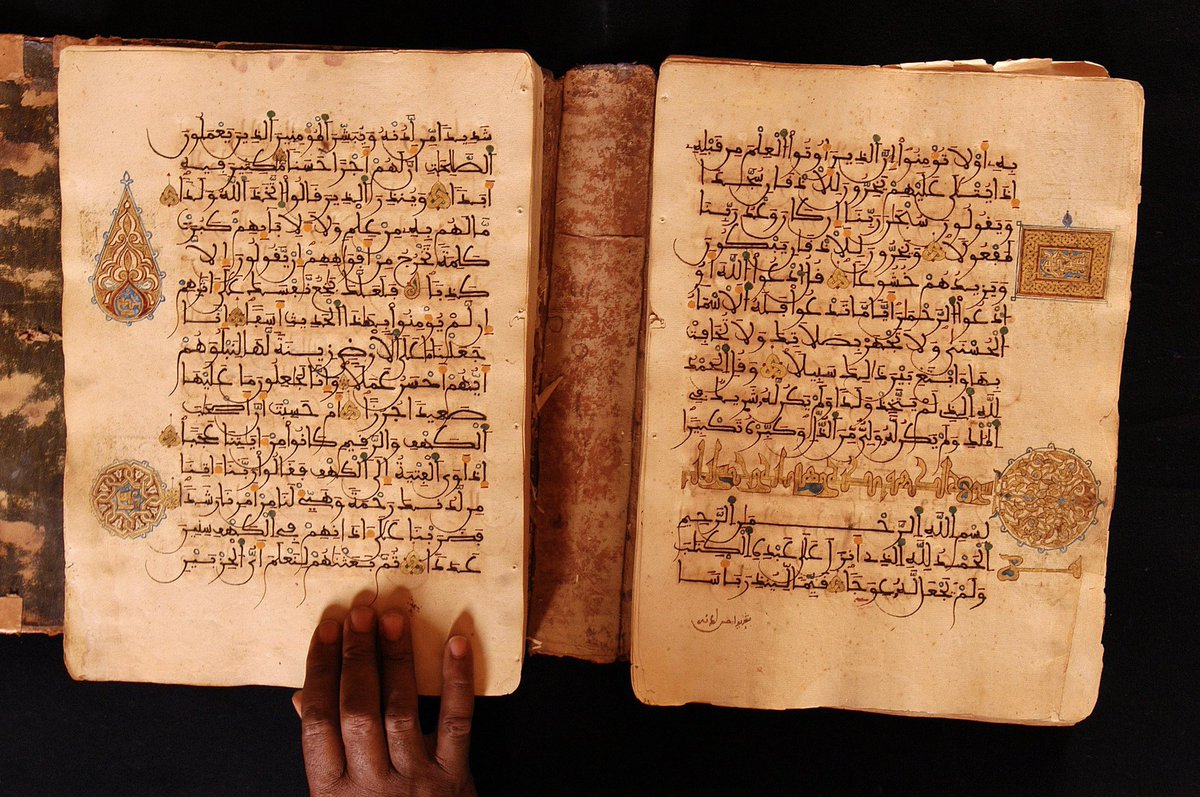 به أو لا تومنوا إن الذين أوتوا العلم من قبله
إذا يتلى عليهم يخرون للأذقان سجدا
ويقولون سبحان ربنا إن كان وعد ربنا
لمفعولا ويخرون للأذقان يبكون
ويزيدهم خشوعا قل ادعوا الله أو
ادعوا الرحمن أيا ما تدعوا فله الأسماء
الحسنى ولا تجهر بصلاتك ولا تخافت
بها وابتغ بين ذلك سبيلا وقل الحمد
لله الذي لم يتخذ ولدا ولم يكن له شريك في
الملك ولم يكن له ولي من الذل وكبره تكبيرا
بسم الله الرحمن الرحيم
الحمد لله الذي أنزل على عبده الكتاب
ولم يجعل له عوجا قيما لينذر بأسا
شديدا من لدنه
شديدا من لدنه ويبشر المومنين الذين يعملون
الصالحات أن لهم أجرا حسنا ماكثين فيه
أبدا وينذر الذين قالوا اتخذ الله ولدا
ما لهم به من علم ولا لآبائهم كبرت
كلمة تخرج من أفواههم إن يقولون إلا
كذبا فلعلك باخع نفسك على آثارهم
إن لم يومنوا بهذا الحديث أسفا إنا
جعلنا ما على الأرض زينة لها لنبلوهم
أيهم أحسن عملا وإنا لجاعلون ما عليها
صعيدا جرزا أم حسبت أن أصحاب
الكهف والرقيم كانوا من آياتنا عجبا
إذ أوى الفتية إلى الكهف فقالوا ربنا آتنا
من لدنك رحمة وهيئ لنا من أمرنا رشدا
فضربنا على آذانهم في الكهف سنين
عددا ثم بعثناهم لنعلم أي الحزبين